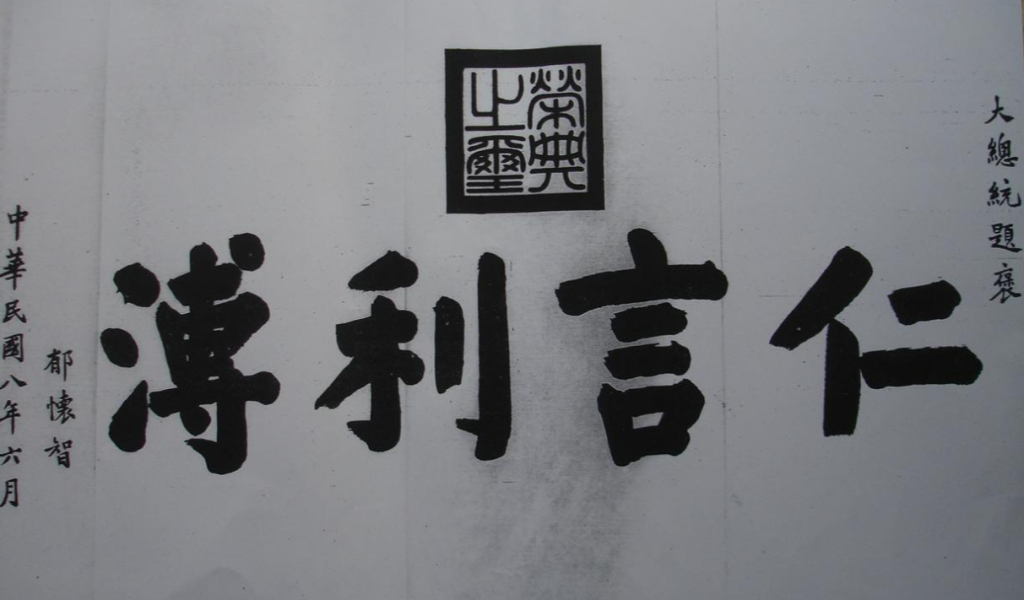 大總統題褒
榮典之璽
仁言利溥
郁懷智
中華民國八年六月